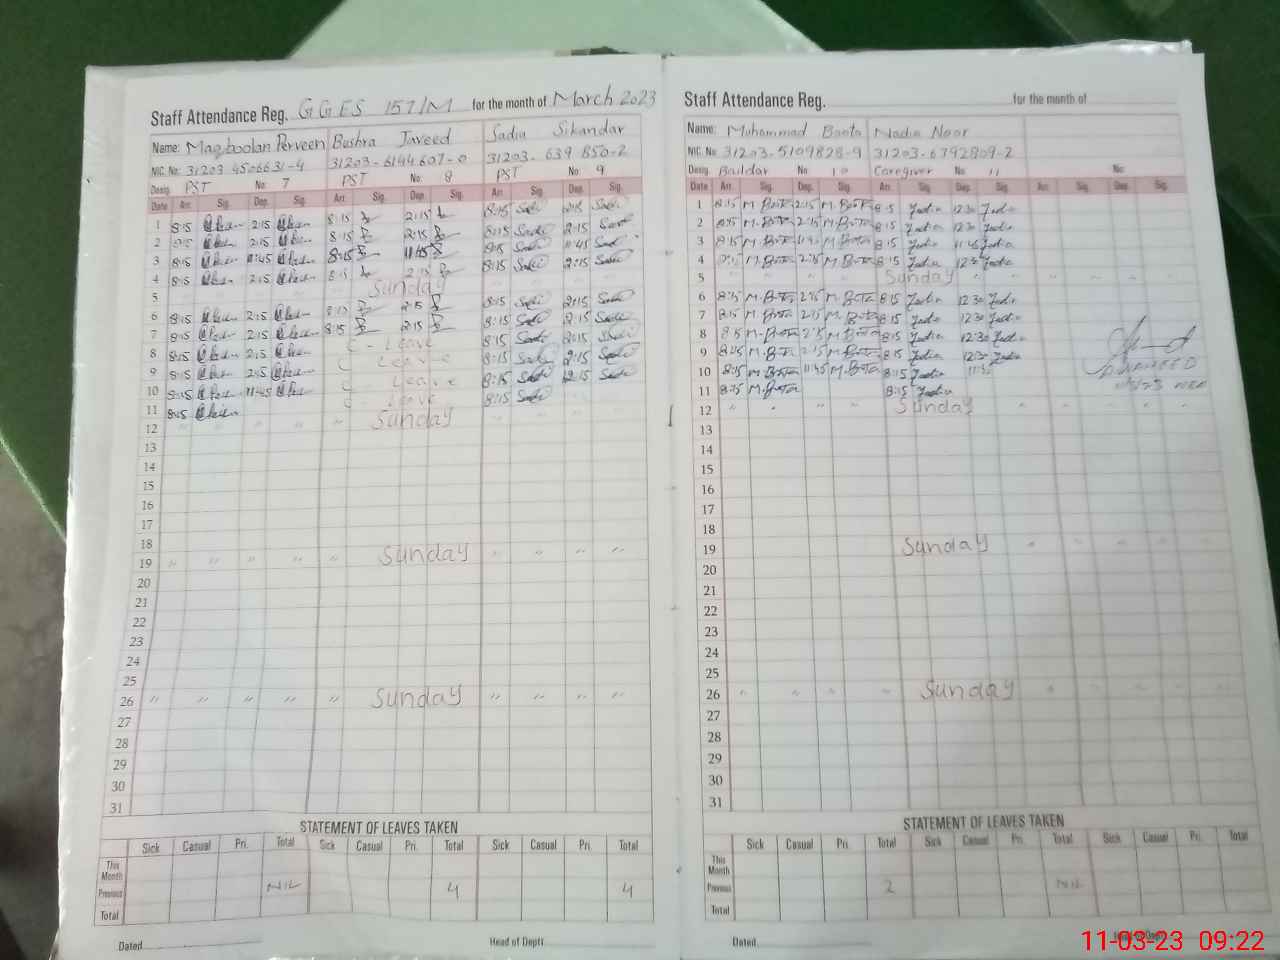 Staff Attendance Reg. GGES 157/M for the month of March 2023
Name: Maqboolan Perveen Bushra Javeed Sadia Sikandar
NIC. No: 31203 4506631-4 31203-6144607-0 31203- 639 850-2
Desig. PST No: 7 PST No: 8 PST No: 9
Date Arr. Sig. Dep. Sig. Arr. Sig. Dep. Sig. Arr. Sig. Dep. Sig.
1 8:15 2:15 8:15 2:15 8:15 2:15
2 8:15 2:15 8:15 2:15 8:15 2:15
3 8:15 11:45 8:15 11:45 8:15 11:45
4 8:15 2:15 8:15 2:15 8:15 2:15
5 Sunday
6 8:15 2:15 8:15 2:15 8:15 2:15
7 8:15 2:15 8:15 2:15 8:15 2:15
8 8:15 2:15 C - Leave 8:15 2:15
9 8:15 2:15 C Leave 8:15 2:15
10 8:15 11:45 C Leave 8:15 12:15
11 8:15 C - Leave 8:15
12 " " " " " Sunday " " " "
13
14
15
16
17
18
19 " " " " " Sunday " " " "
20
21
22
23
24
25
26 " " " " " Sunday " " " "
27
28
29
30
31
STATEMENT OF LEAVES TAKEN
Sick Casual Pri. Total Sick Casual Pri. Total Sick Casual Pri. Total
This Month
Previous NIL 4 4
Total
Dated Head of Deptt
Staff Attendance Reg. for the month of
Name: Muhammad Boota Nadia Noor
NIC. No: 31203-5109828-9 31203-6792809-2
Desig. Baildar No: 10 Caregiver No: 11 No:
Date Arr. Sig. Dep. Sig. Arr. Sig. Dep. Sig. Arr. Sig. Dep. Sig.
1 8:15 M.Bota 2:15 M.Bota 8:15 Nadia 12:30 Nadia
2 8:15 M.Bota 2:15 M.Bota 8:15 Nadia 12:30 Nadia
3 8:15 M.Bota 11:45 M.Bota 8:15 Nadia 11:45 Nadia
4 8:15 M.Bota 2:15 M.Bota 8:15 Nadia 12:30 Nadia
5 Sunday
6 8:15 M.Bota 2:15 M.Bota 8:15 Nadia 12:30 Nadia
7 8:15 M.Bota 2:15 M.Bota 8:15 Nadia 12:30 Nadia
8 8:15 M.Bota 2:15 M.Bota 8:15 Nadia 12:30 Nadia
9 8:15 M.Bota 2:15 M.Bota 8:15 Nadia 12:30 Nadia
10 8:15 M.Bota 11:45 M.Bota 8:15 Nadia 11:45
11 8:15 M.Bota 8:15 Nadia
12 " " " " Sunday " " " "
13
14
15
16
17
18
19 Sunday " " " " "
20
21
22
23
24
25
26 " " " " Sunday " " " " "
27
28
29
30
31
STATEMENT OF LEAVES TAKEN
Sick Casual Pri. Total Sick Casual Pri. Total Sick Casual Pri. Total
This Month
Previous 2 NIL
Total
Dated
11-03-23 09:22